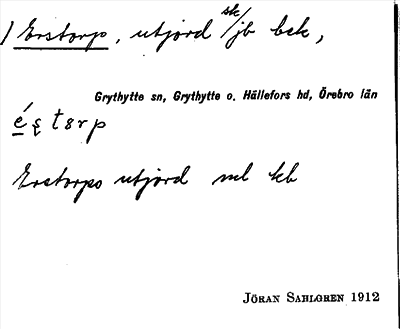 1) Erstorp, utjord sk/jb bek,
Grythytte sn, Grythytte o. Hällefors hd, Örebro län
é ș t ɛ r p
Erstorps utjord ml kb
JÖRAN SAHLGREN 1912